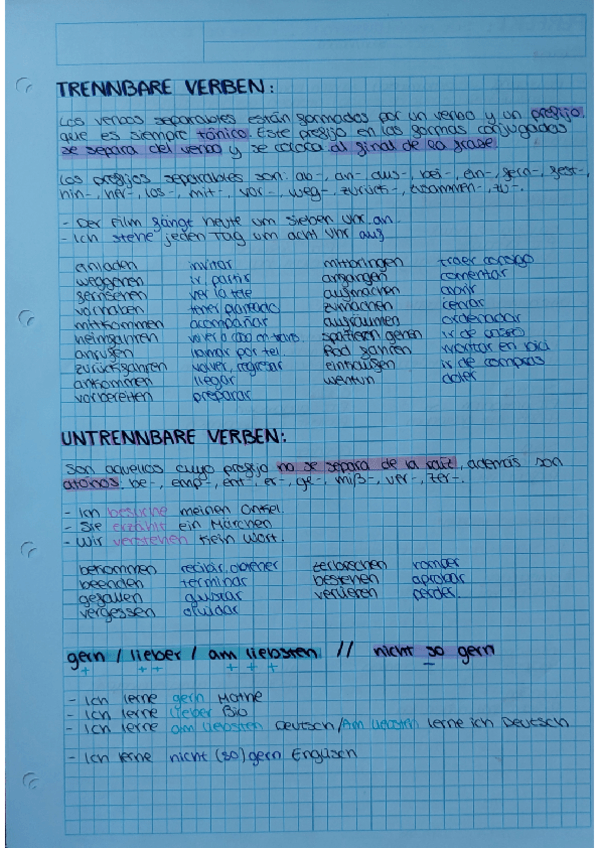 TRENNBARE VERBEN:
Los verbos separables están formados por un verbo y un prefijo
que es siempre tónico. Este prefijo en las formas conjugadas
se separa del verbo y se coloca al final de la frase.
Los prefijos separables son: ab-, an-, aus-, bei-, ein-, fern-, fest-,
hin-, her-, los-, mit-, vor-, weg-, zurück-, zusammen-, zu-.
- Der Film fängt heute um sieben Uhr an.
- Ich stehe jeden Tag um acht Uhr auf
anladen invitar mitbringen traer consigo
weggehen ir partir anfangen comentar
fernsehen ver la tele aufmachen abrir
vorhaben tener pensado zumachen cerrar
mitkommen acompañar aufräumen ordenador
heimfahren volver a casa en trans. spazieren gehen ir de paseo
anrufen llamar por tel. Rad fahren montar en bici
zurückfahren volver, regresar einkaufen ir de compras
ankommen llegar wehtun doler
vorbereiten preparar
UNTRENNBARE VERBEN:
Son aquellos cuyo prefijo no se separa de la raíz, además son
átonos. be-, emp-, ent-, er-, ge-, miß-, ver-, zer-.
- Ich besuche meinen Onkel.
- Sie erzählt ein Märchen
- Wir verstehen kein Wort.
bekommen recibir, obtener zerbrechen romper
beenden terminar bestehen aprobar
gefallen gustar verlieren perder
vergessen olvidar
gern / lieber / am liebsten // nicht so gern
+ ++ +++ -
- Ich lerne gern Mathe
- Ich lerne lieber Bio
- Ich lerne am liebsten Deutsch/Am liebsten lerne ich Deutsch
- Ich lerne nicht (so) gern Englisch